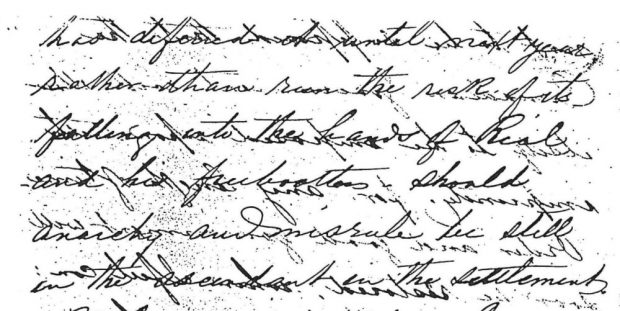 has deferred it until next year,
rather than run the risk of its
falling into the hands of Riel
and his freebooters should
anarchy and misrule be still
in the ascendant in the settlement.